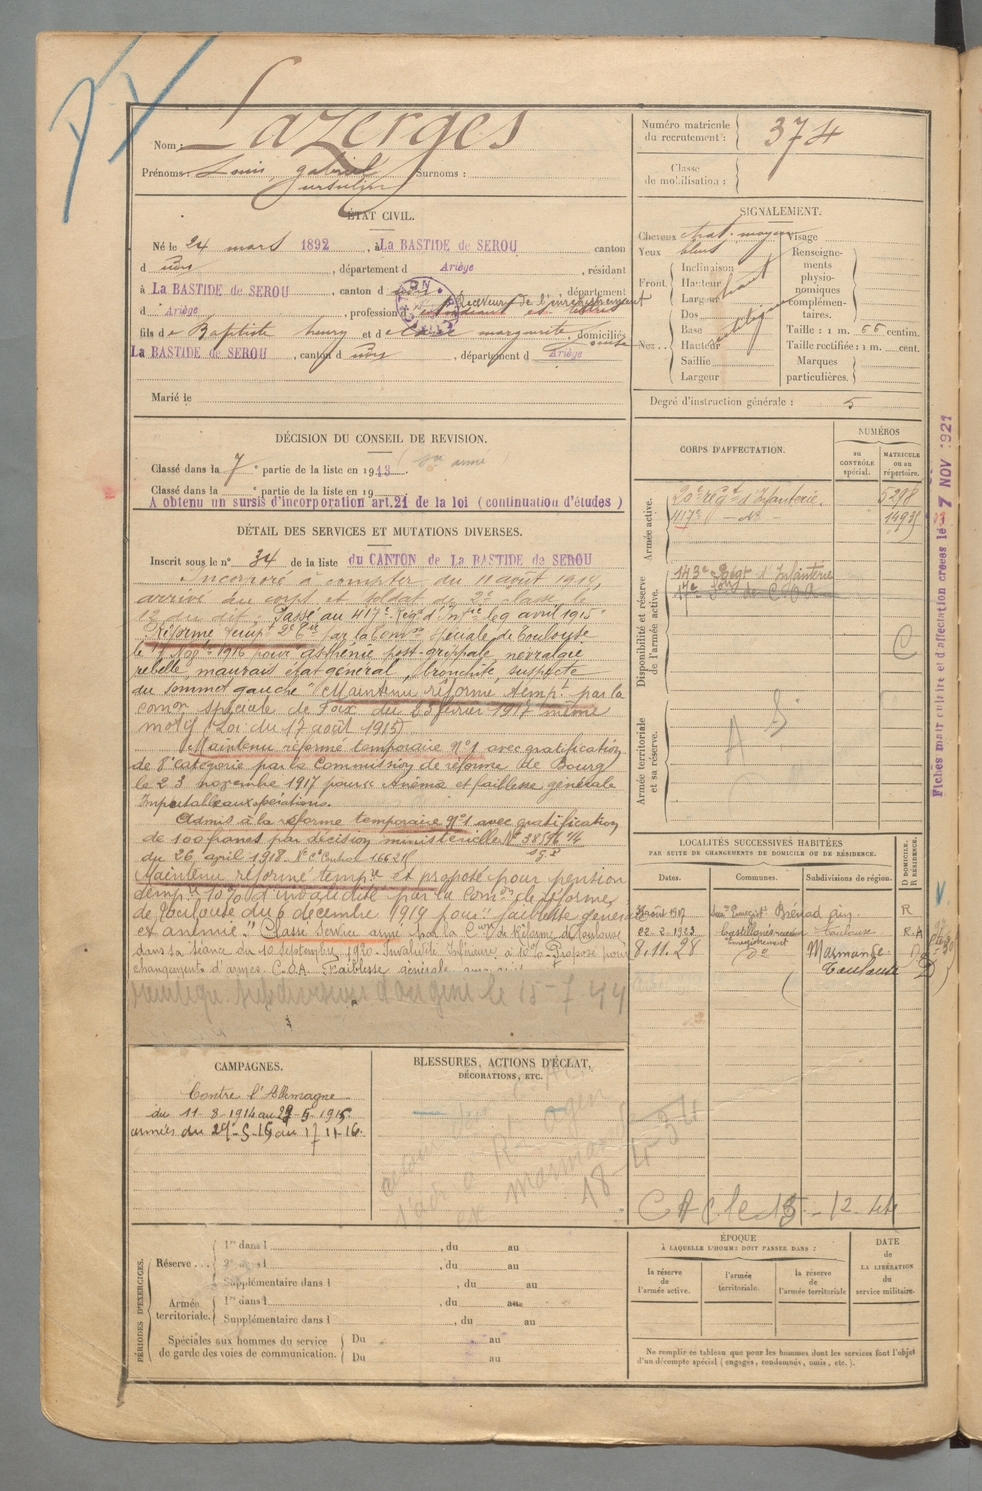 Nom : Lazerges
Prénoms : Louis gabriel Surnoms :
Numéro matricule du recrutement : 374
Classe de mobilisation :
ÉTAT CIVIL.
Né le 24 mars 1892, à La BASTIDE de SEROU canton
d udit, département d Ariège, résidant
à La BASTIDE de SEROU, canton d udit, département
d Ariège, profession d'étudiant et lettres
Receveur de l'enregistrement
fils de Baptiste henry et de marguerite, domiciliés
La BASTIDE de SEROU, canton d udit, département d Ariège
Marié le
SIGNALEMENT.
Cheveux chat. moyen Visage
Yeux bleus
Front Inclinaison
Hauteur haut
Largeur
Nez Dos
Base
Hauteur
Saillie
Largeur
Renseignements physionomiques complémentaires.
Taille : 1 m. 66 centim.
Taille rectifiée : 1 m. cent.
Marques particulières.
Degré d'instruction générale : 5
DÉCISION DU CONSEIL DE REVISION.
Classé dans la 7e partie de la liste en 1913.
Classé dans la e partie de la liste en 19
A obtenu un sursis d'incorporation art.21 de la loi (continuation d'études)
DÉTAIL DES SERVICES ET MUTATIONS DIVERSES.
Inscrit sous le n° 34 de la liste du CANTON de La BASTIDE de SEROU
Incorporé à compter du 11 août 1914,
arrivé au corps et soldat de 2e classe le
12 du dit. Passé au 417e Regt d'Infrie le 9 avril 1915.
Réformé tempre 2e Cie par la Comon spéciale de Toulouse
le 17 Nov. 1916 pour asthénie post-grippale névralgie
rebelle, mauvais état général, bronchite, suspecte
du sommet gauche" Maintenu réformé tempt par la
comon spéciale de Foix du 23 février 1917 même
motif (Loi du 17 août 1915)
Maintenu réformé temporaire N°1 avec gratification
de 8e catégorie par la Commission de réforme de Bourg
le 23 novembre 1917 pour "Anémie et faiblesse générale
Imputable aux opérations.
Admis à la réforme temporaire N°1 avec gratification
de 100 francs par décision ministérielle N° 38596
du 26 avril 1918.
Maintenu réformé tempre et proposé pour pension
temp. 10% d'invalidité par la Comon de réforme
de Toulouse du 6 décembre 1919 pour "faiblesse générale
et anémie." Classé Service armé par la Con de Réforme de Toulouse
dans sa séance du 10 Septembre 1920. Invalidité Inférieure à 10% Proposé pour
changement d'armes C.O.A. Faiblesse générale
subdivision d'origine le 15-7-44
CORPS D'AFFECTATION.
NUMÉROS
au CONTRÔLE spécial.
MATRICULE ou au répertoire.
Armée active.
20e régt d'Infanterie. 5298
417e — do 1493
Disponibilité et réserve de l'armée active.
143e Régt d'Infanterie
17e Son de C.O.A.
C
Armée territoriale et sa réserve.
Fiches matriculaire et d'affectation créées le 7 NOV 1921
LOCALITÉS SUCCESSIVES HABITÉES
PAR SUITE DE CHANGEMENTS DE DOMICILE OU DE RÉSIDENCE.
Dates. Communes. Subdivisions de région. D DOMICILE. R RÉSIDENCE.
août 1917 Brénod R
22-2-1923 Toulouse R.A
Enregistrement
8.11.28 do Marmande
Toulouse
C A C le 15-12-44
CAMPAGNES.
Contre l'Allemagne
du 11-8-1914 au 29-5-1915
armées du 29-5-15 au 17-11-16
BLESSURES, ACTIONS D'ÉCLAT,
DÉCORATIONS, ETC.
Agen
Marmande
18-4-34
PÉRIODES D'EXERCICES.
Réserve
1re dans l , du au
2e dans l , du au
Supplémentaire dans l , du au
Armée territoriale.
1re dans l , du au
Supplémentaire dans l , du au
Spéciales aux hommes du service de garde des voies de communication.
Du au
Du au
ÉPOQUE
À LAQUELLE L'HOMME DOIT PASSER DANS :
la réserve de l'armée active.
l'armée territoriale.
la réserve de l'armée territoriale
DATE de LA LIBÉRATION du service militaire.
Ne remplir ce tableau que pour les hommes dont les services font l'objet
d'un décompte spécial (engagés, condamnés, omis, etc.).